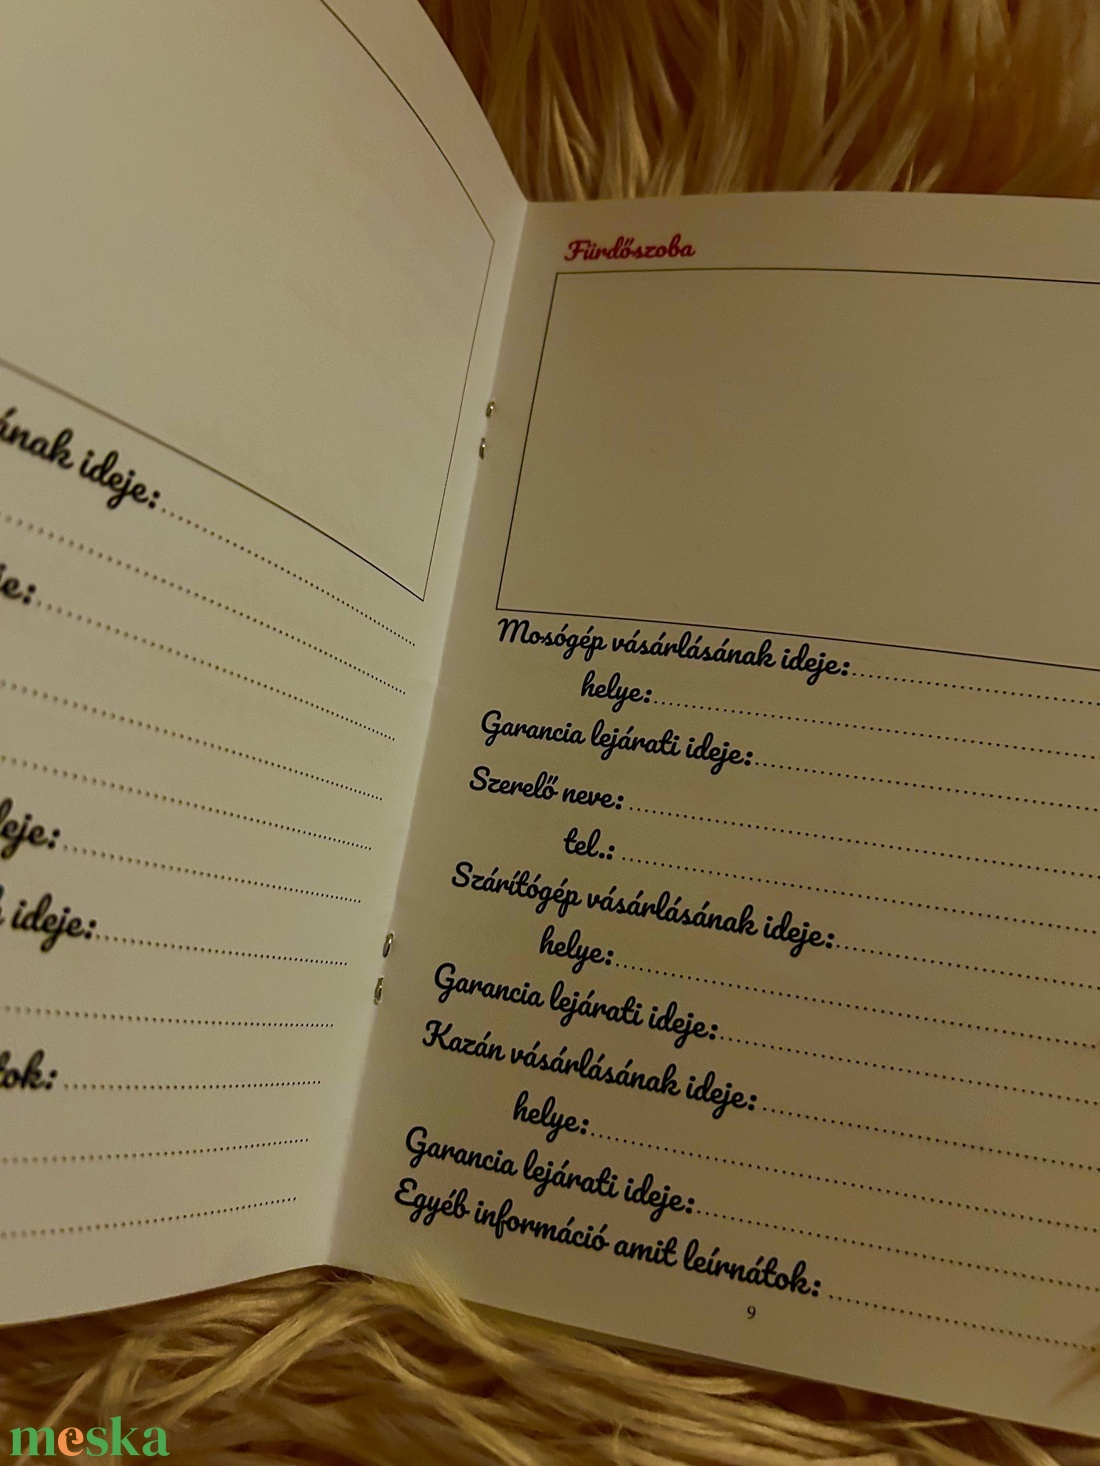 ideje:
ideje:
Fürdőszoba
Mosógép vásárlásának ideje:
helye:
Garancia lejárati ideje:
Szerelő neve:
tel.:
Szárítógép vásárlásának ideje:
helye:
Garancia lejárati ideje:
Kazán vásárlásának ideje:
helye:
Garancia lejárati ideje:
Egyéb információ amit leírnátok:
9
meska